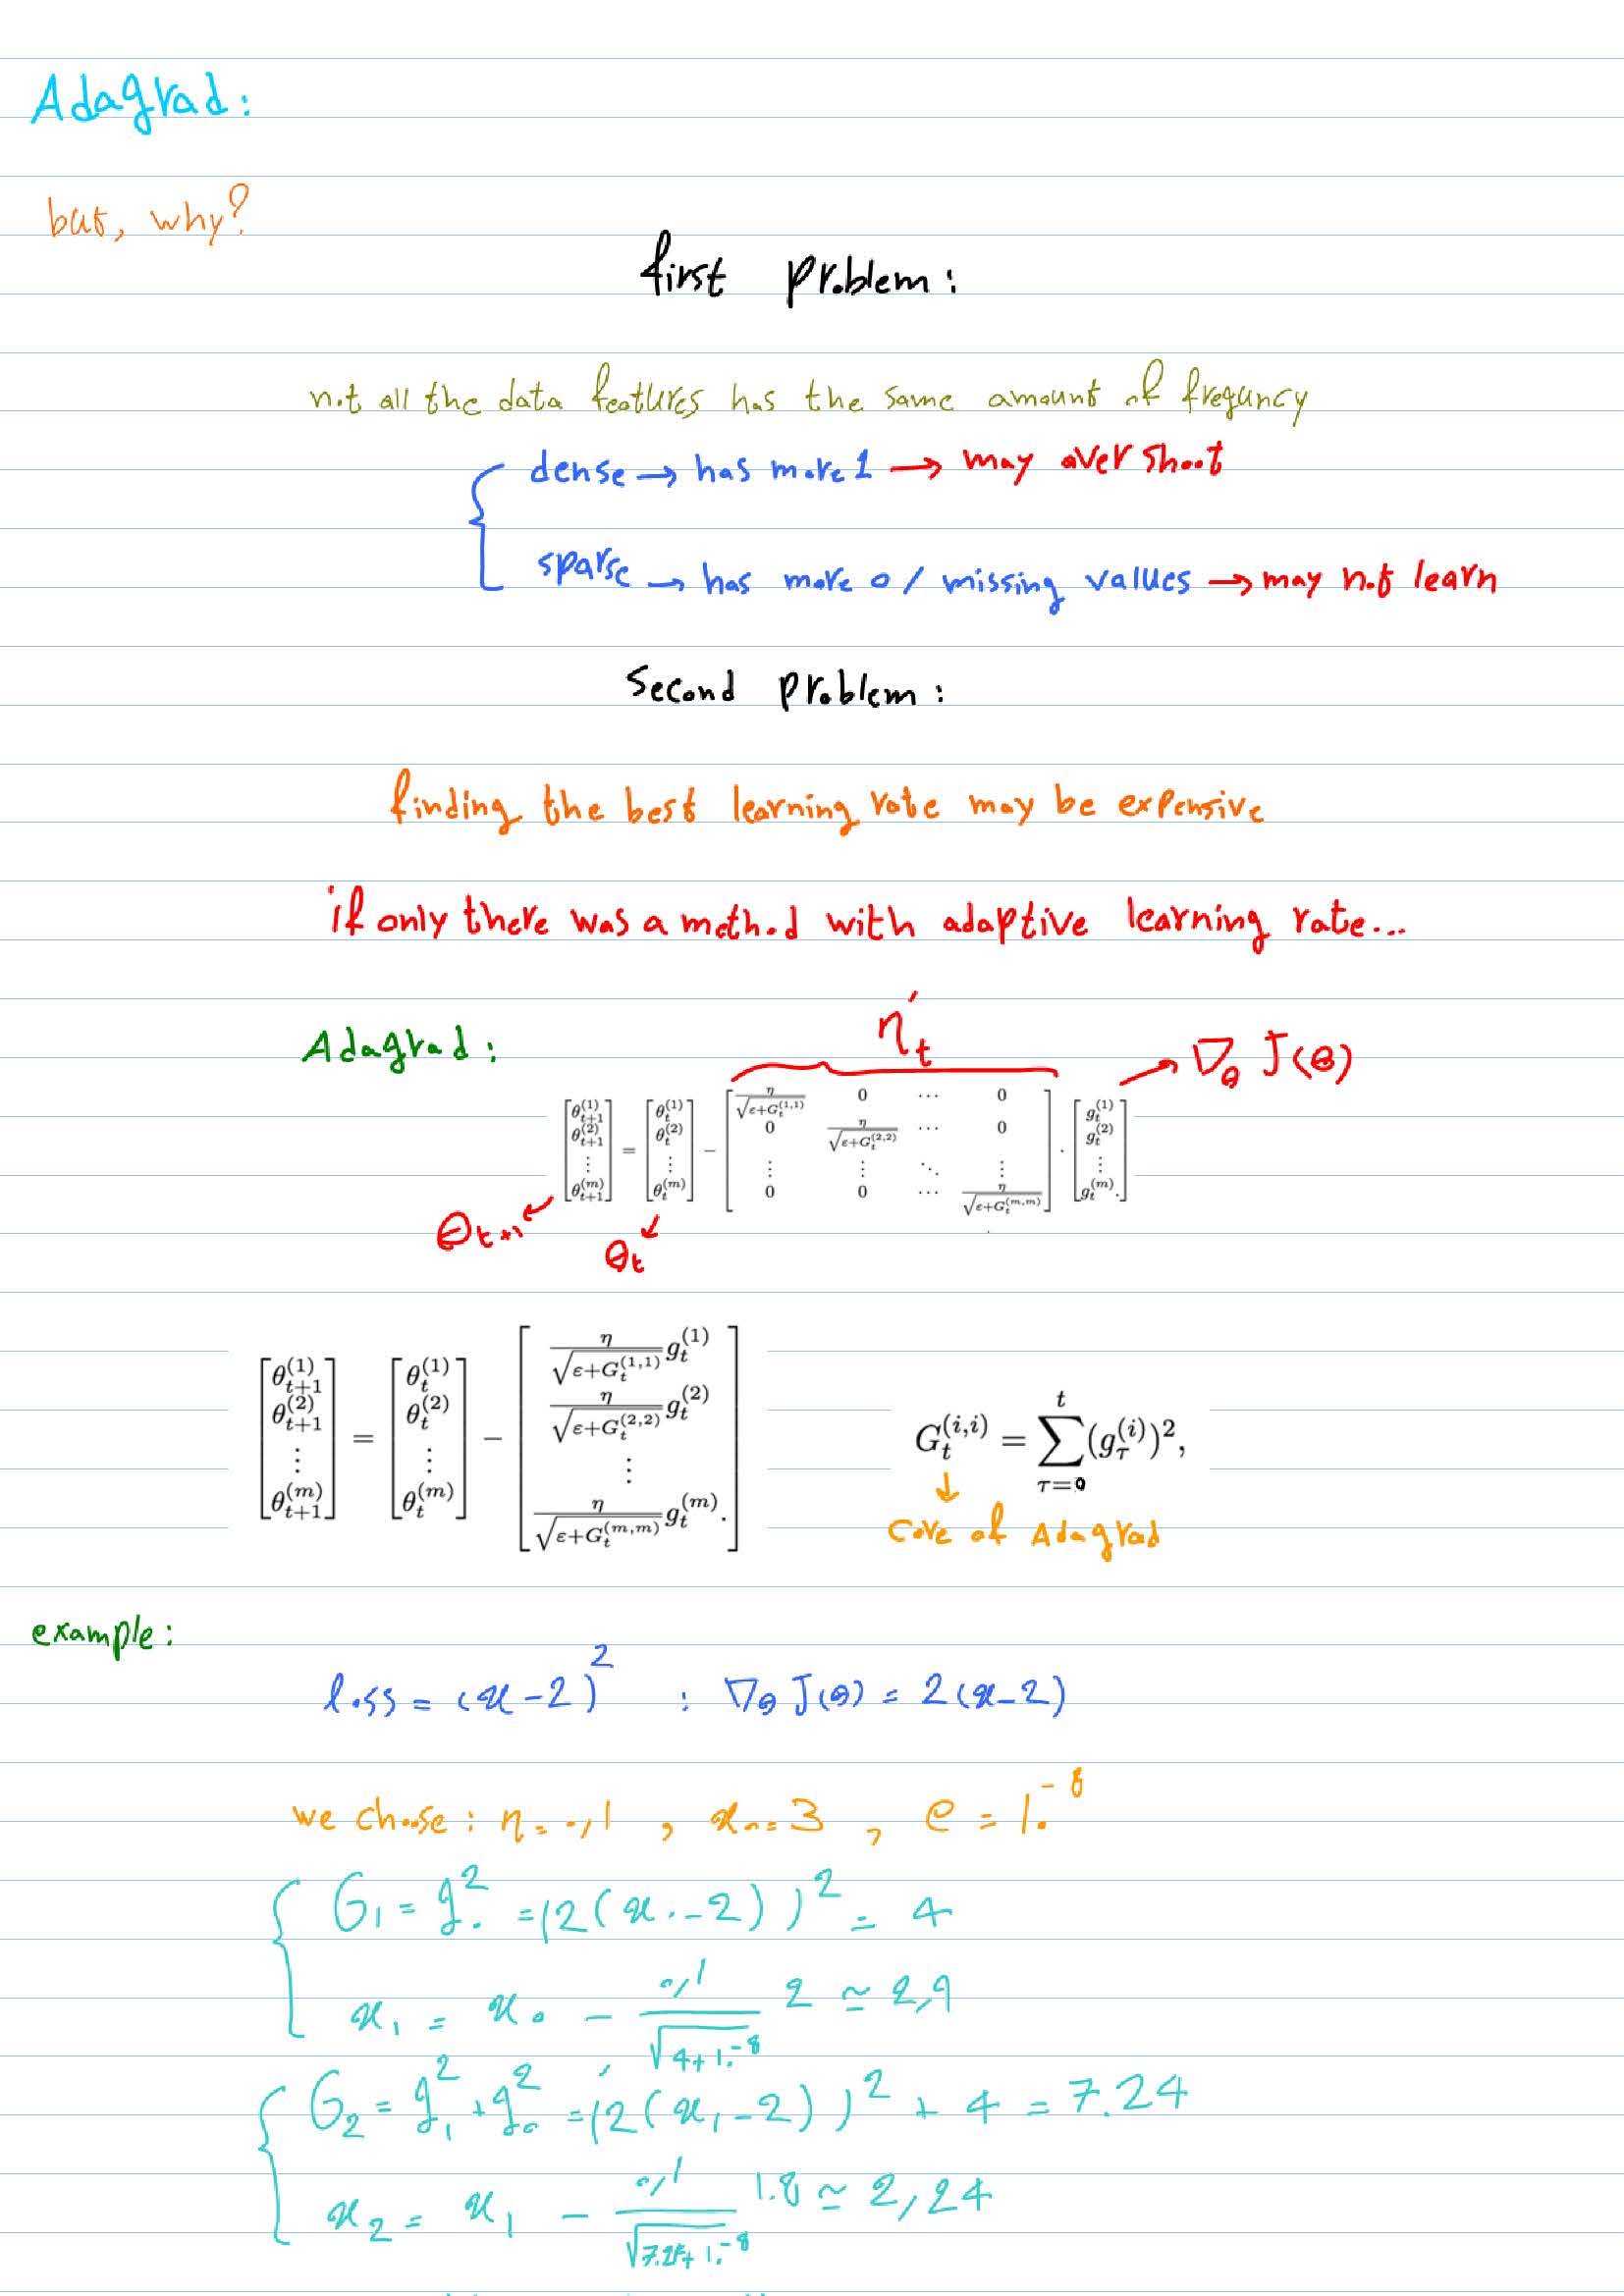 Adagrad:
but, why?
first problem:
not all the data features has the same amount of frequncy
dense → has more 1 → may over shoot
sparse → has more 0 / missing values → may not learn
Second problem:
finding the best learning rate may be expensive
if only there was a method with adaptive learning rate...
Adagrad: η′_t → ∇_θ J(θ)
[θ_{t+1}^{(1)} θ_{t+1}^{(2)} ⋮ θ_{t+1}^{(m)}] = [θ_t^{(1)} θ_t^{(2)} ⋮ θ_t^{(m)}] − [η/√(ε+G_t^{(1,1)}) 0 ⋯ 0; 0 η/√(ε+G_t^{(2,2)}) ⋯ 0; ⋮ ⋮ ⋱ ⋮; 0 0 ⋯ η/√(ε+G_t^{(m,m)})] · [g_t^{(1)} g_t^{(2)} ⋮ g_t^{(m)}.]
θ_{t+1} θ_t
[θ_{t+1}^{(1)} θ_{t+1}^{(2)} ⋮ θ_{t+1}^{(m)}] = [θ_t^{(1)} θ_t^{(2)} ⋮ θ_t^{(m)}] − [η/√(ε+G_t^{(1,1)}) g_t^{(1)}; η/√(ε+G_t^{(2,2)}) g_t^{(2)}; ⋮; η/√(ε+G_t^{(m,m)}) g_t^{(m)}.]
G_t^{(i,i)} = ∑_{τ=0}^{t} (g_τ^{(i)})²,
core of Adagrad
example:
loss = (x-2)² : ∇_θ J(θ) = 2(x-2)
we choose: η = 0,1 , x₀ = 3 , e = 10⁻⁸
G₁ = g₀² = (2(x₀-2))² = 4
x₁ = x₀ - 0,1/√(4+10⁻⁸) 2 ≃ 2,9
G₂ = g₁² + g₀² = (2(x₁-2))² + 4 = 7.24
x₂ = x₁ - 0,1/√(7.24+10⁻⁸) 1.8 ≃ 2,24